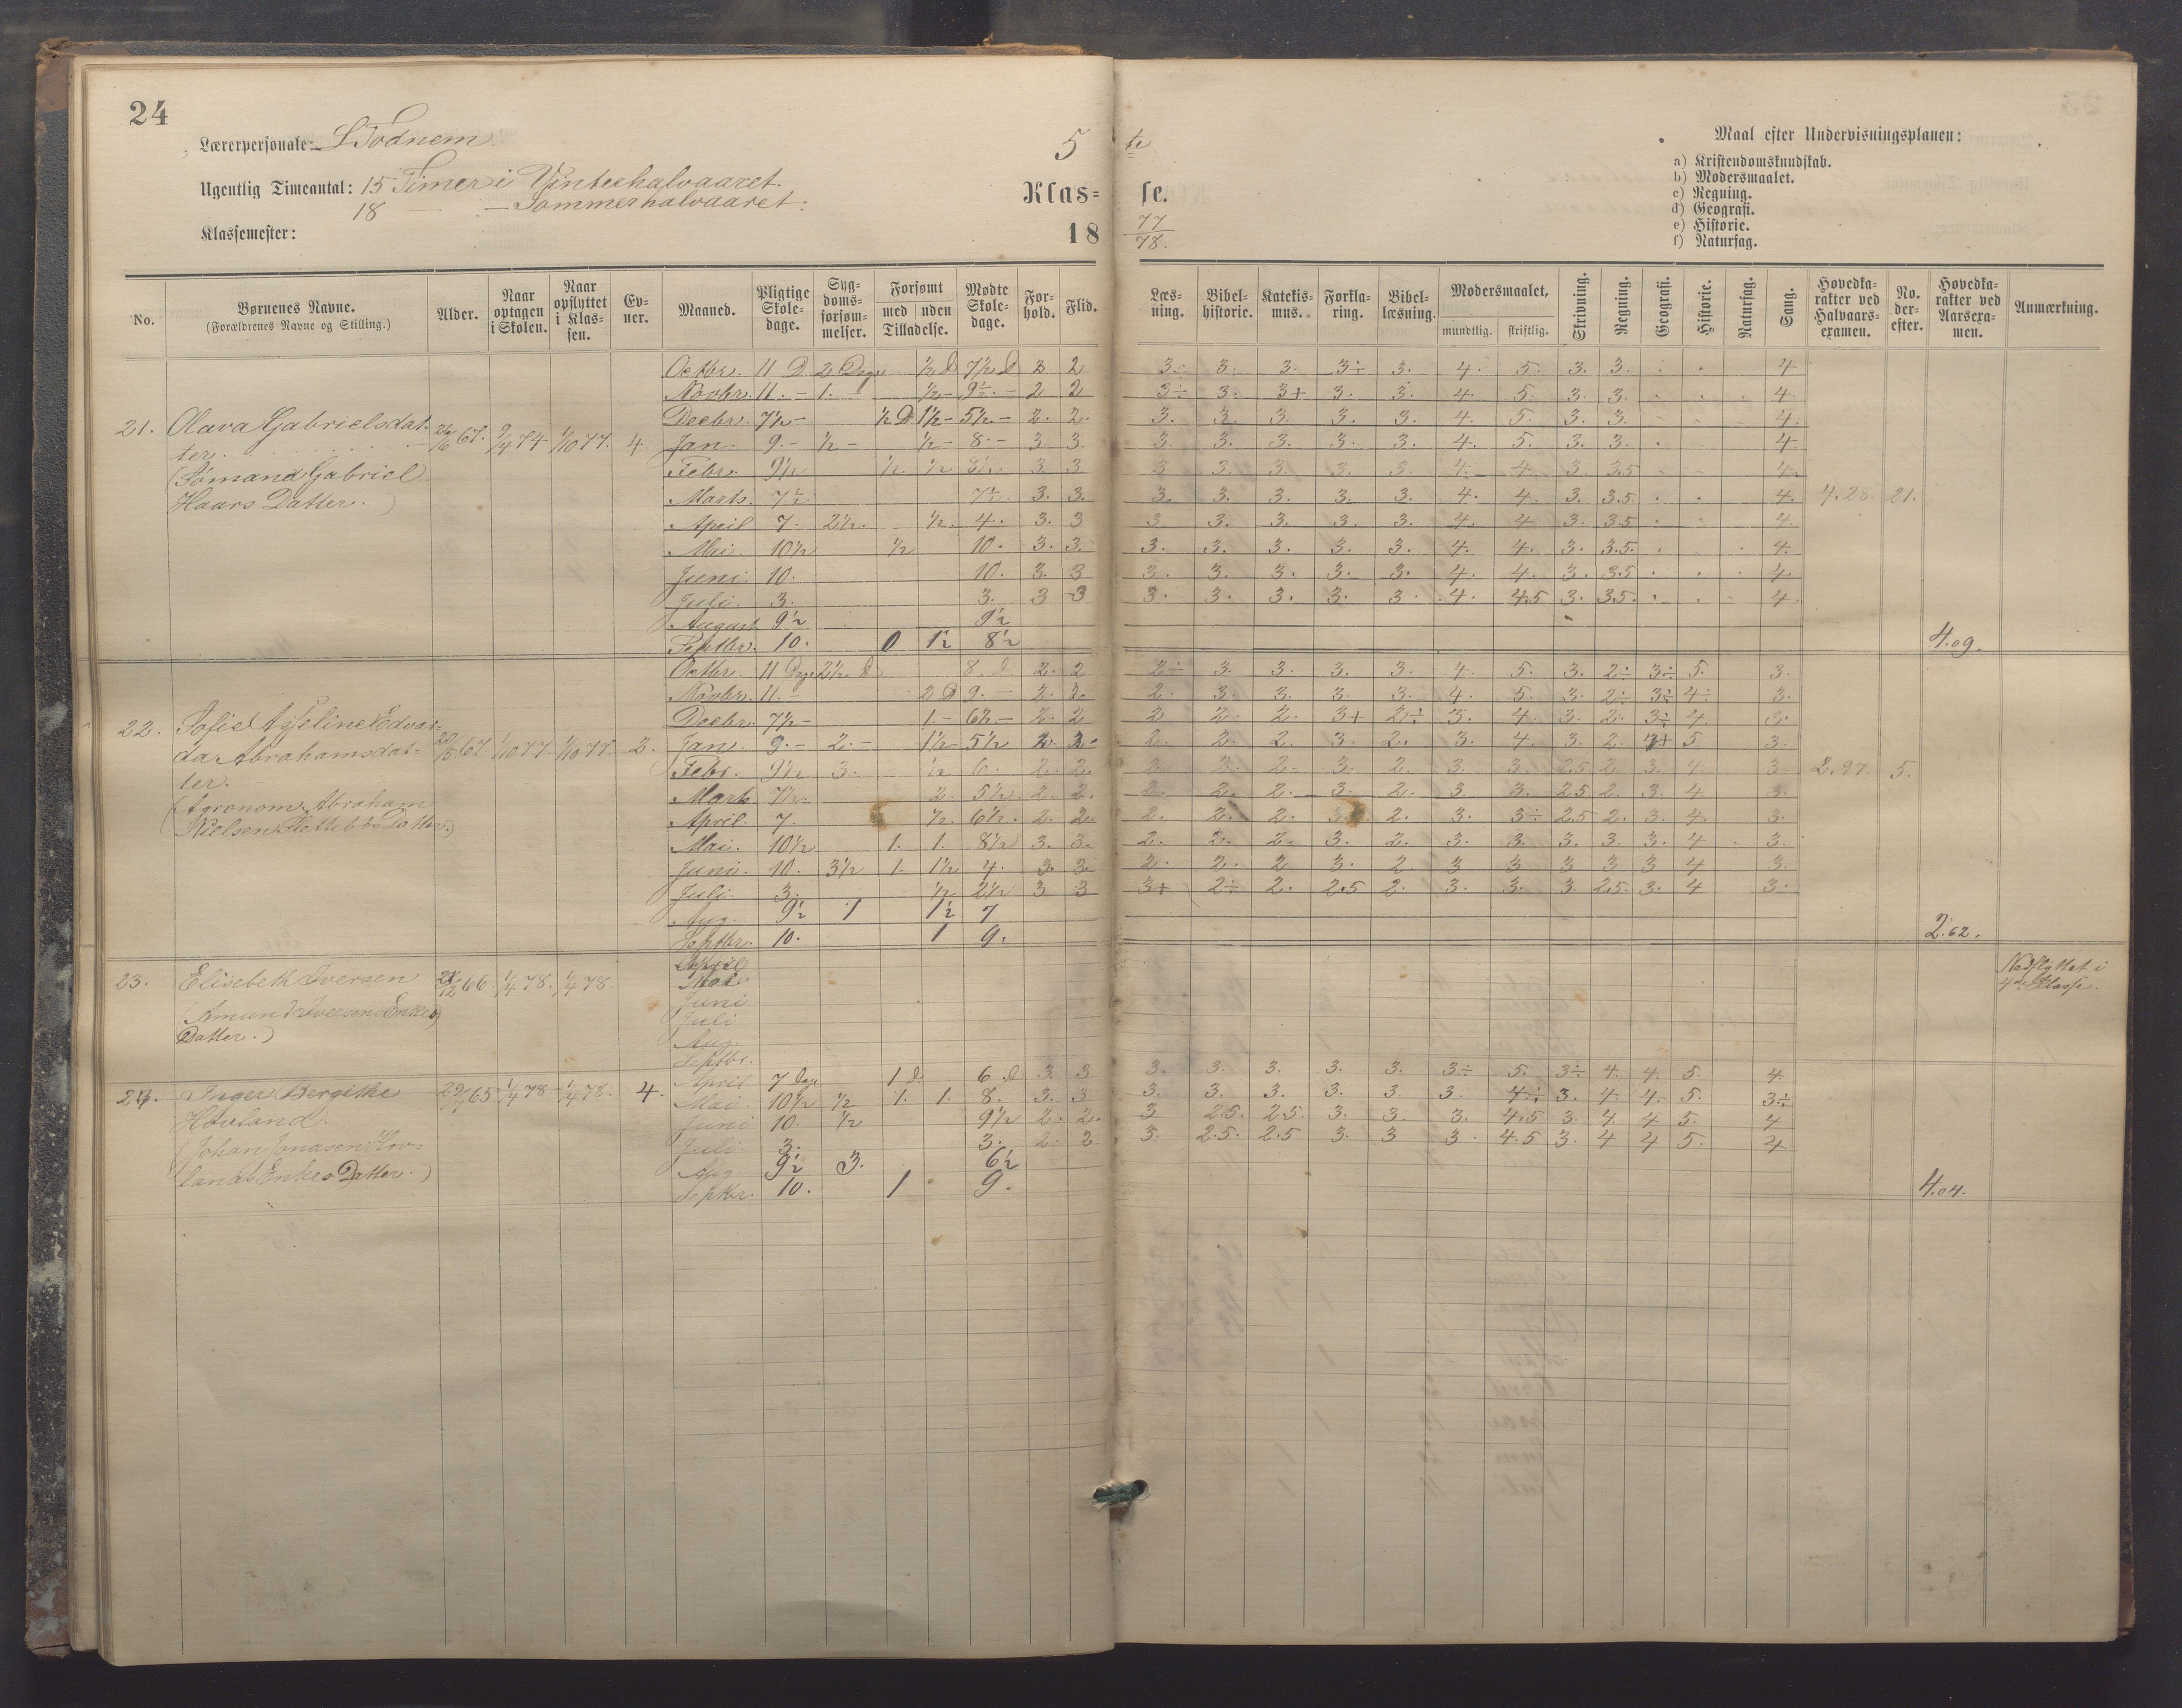 24
Lærerpersonale: S Todnem
5 te
Maal efter Undervisningsplanen:
a) Kristendomskundskab.
b) Modersmaalet.
c) Regning.
d) Geografi.
e) Historie.
f) Naturfag.
Ugentlig Timeantal: 15 Timer i Vinterhalvaaret.
18 — — Sommerhalvaaret.
Klas= se.
Klassemester:
18 77/78.
No. Børnenes Navne. (Forældrenes Navne og Stilling.) Alder. Naar optagen i Skolen. Naar opflyttet i Klassen. Evner. Maaned. Pligtige Skoledage. Sygdomsforsømmelser. Forsømt med uden Tilladelse. Mødte Skoledage. Forhold. Flid. Læsning. Bibelhistorie. Katekismus. Forklaring. Bibellæsning. Modersmaalet, mundtlig. skriftlig. Skrivning. Regning. Geografi. Historie. Naturfag. Sang. Hovedkarakter ved Halvaarsexamen. No. derefter. Hovedkarakter ved Aarsexamen. Anmærkning.
Octbr. 11 D 2 Dage ½ d 7½ d 2 2 3. 3. 3. 3÷ 3. 4. 5. 3. 3. 4
Novbr. 11. – 1. – ½ – 9½ – 2 2 3÷ 3. 3+ 3. 3. 4. 5. 3. 3. 4.
Decbr. 7½ – ½ D 1½ – 5½ – 2. 2. 3. 3. 3. 3. 3. 4. 5. 3. 3. 4.
21. Olava Gabrielsdat- 67. 9/4 74 1/10 77. 4. Jan. 9. – ½ – ½ – 8. – 3. 3. 3. 3. 3. 3. 3. 4. 5. 3. 3. 4.
ter.
Febr. 9½ ½ ½ 8½ 3. 3. 3. 3. 3. 3. 3. 4. 4. 3. 3.5 4.
(Sømand Gabriel
Marts. 7½ 7½ 3. 3. 3. 3. 3. 3. 3. 4. 4. 3. 3.5. 4. 4.28. 21.
Haars Datter.)
April 7. 2½. ½. 4. 3. 3 3. 3. 3. 3. 3. 4. 4 3. 3.5 4.
Mai. 10½ ½ 10. 3. 3. 3. 3. 3. 3. 3. 4. 4. 3. 3.5. 4.
Juni. 10. 10. 3. 3 3. 3. 3. 3. 3. 4. 4. 3. 3.5 4.
Juli. 3. 3. 3 3 3. 3. 3. 3. 3. 4. 4.5 3. 3.5. 4.
August 9½ 9½
Septbr. 10. 0 1½ 8½ 4.09.
Octbr. 11 Dage 2½ d 8. d 2. 2 2÷ 3. 3. 3. 3. 4. 5. 3. 2÷ 3÷ 5. 3.
Novbr. 11. – 2 D 9. – 2. 2. 2. 3. 3. 3. 3. 4. 5. 3. 2÷ 3÷ 4÷ 3.
Decbr. 7½ – 1. – 6½ – 2. 2 2 2. 2. 3+ 2÷ 3. 4. 3. 2. 3÷ 4. 3.
22. Sofie Edvar-
da Abrahamsdat= 67. 1/10 77. 1/10 77. 2. Jan. 9. – 2. – 1½ – 5½ 2. 2. 2. 2. 2. 3. 2. 3. 4. 3. 2. 5 3.
ter.
Febr. 9½ 3. ½ 6. 2. 2. 2. 2. 2. 3. 2. 3. 3. 2.5 2. 3. 4. 3 2.97. 5.
(Agronom Abraham
Marts 7½. 2. 5½. 2. 2. 2. 2. 2. 3. 2. 3. 3. 2.5 2. 3. 4 3.
Nielsen Slettebös Datter.)
April. 7. ½. 6½. 2. 2. 2. 2. 2. 2. 3. 3÷ 2.5 2. 3. 4. 3.
Mai. 10½ 1. 1. 8½ 3. 3. 2. 2. 2. 3. 2. 3. 3. 3. 3. 3. 4 3.
Juni. 10. 3½ 1. 1½ 4. 3. 3. 2. 2. 2 3. 2 3 3 3 3 3 4 3.
Juli. 3. ½ 2½ 3 3 3+ 2÷ 2. 2.5 2. 3. 3. 3. 2.5. 3. 4 3.
Aug. 9½ 1 1½ 7
Septbr. 10. 1 9. 2.62.
23. Elisebeth Iversen 66. 1/4 78. 1/4 78. April Nedflyttet i
Mai 4de Klasse.
Juni
(Amund Iversens Enkes Juli
Datter.) Aug.
Septbr.
April 7 Dage 1 d. 6 d 3. 3 3. 3. 3. 3. 3. 3÷ 5. 3÷ 4. 4. 5. 4.
24. Inger Bergithe 65 1/4 78 1/4 78. 4. Mai. 10½ ½ 1. 1. 8. 3. 3 3. 3. 3. 3. 3. 3. 4÷ 3. 4. 4. 5. 3÷
Hovland. Juni 10. ½ 9½ 2. 2. 3 2.5. 2.5. 3. 3. 3. 4.5 3. 4. 4 5. 4
(Johan Jonasen Hov- Juli. 3. 3. 2. 2 3. 2.5. 2.5 3. 3 3. 4.5 3. 4 4 5. 4
lands Enkes Datter.) Aug 9½ 3. 6½
Septbr. 10. 1 9. 4.04.